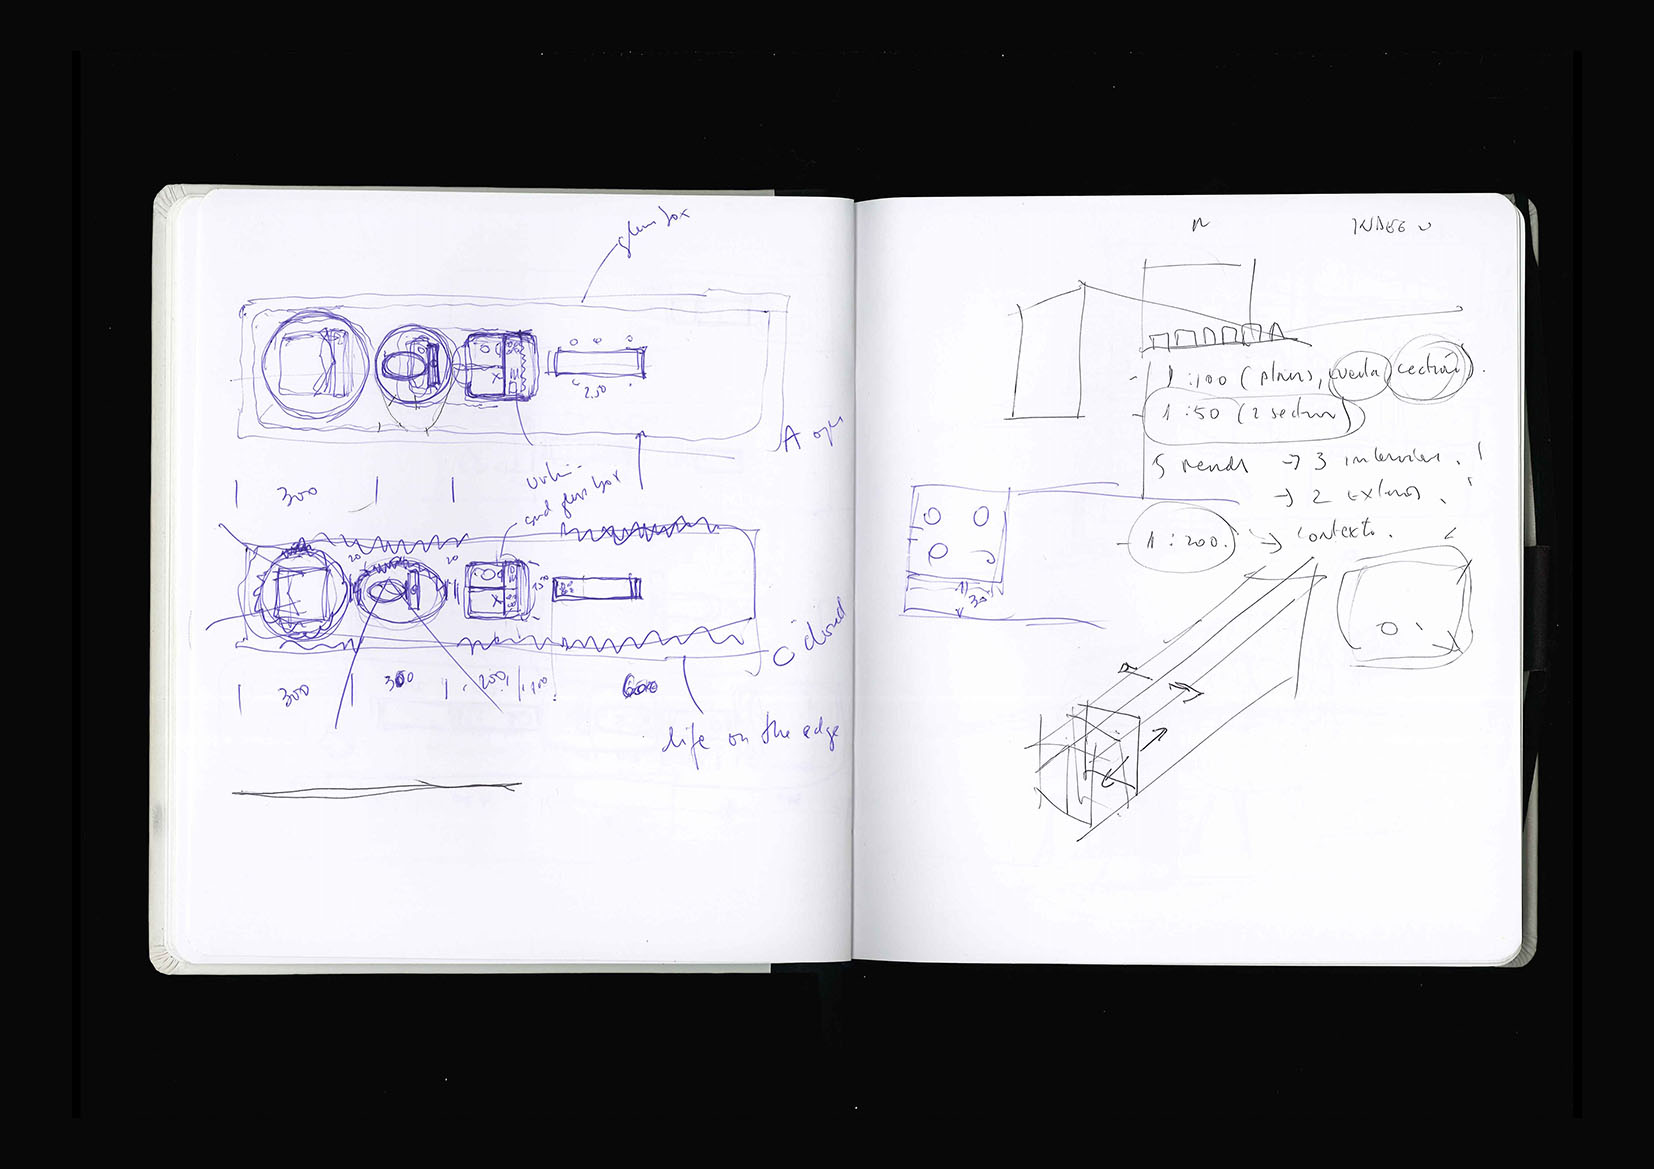 glass box
2.50
A open
300
and glass box
20
20
O closed
300
300
200
100
600
life on the edge
1:100 (plans,
1:50 (2 section)
5 renders → 3 interiors.
→ 2 exteriors.
1:200. → contexto.
30